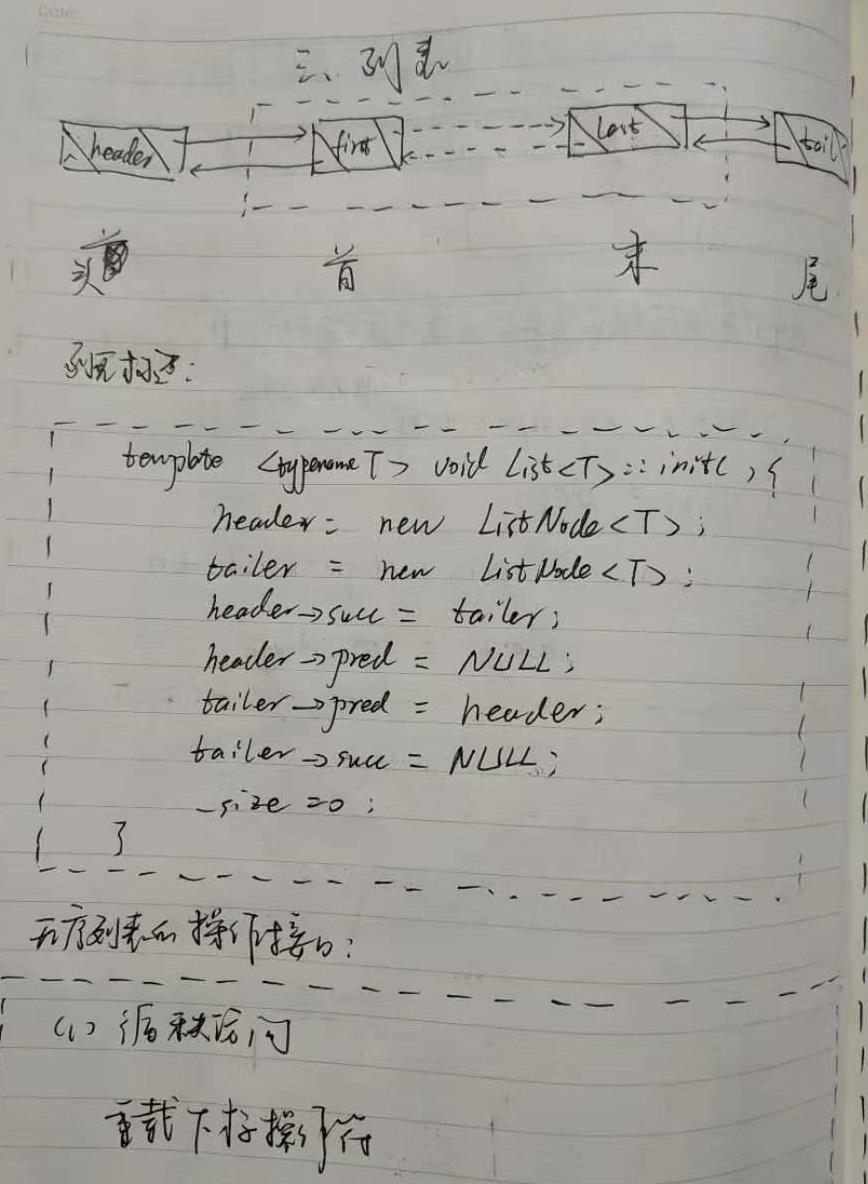 Date
三、列表
header first last tail
头 首 末 尾
列表构造:
template <typename T> void List<T>::init( ) {
header = new ListNode<T>;
tailer = new ListNode<T>;
header→succ = tailer;
header→pred = NULL;
tailer→pred = header;
tailer→succ = NULL;
_size = 0;
}
无序列表的操作接口:
(1) 循秩访问
重载下标操作符